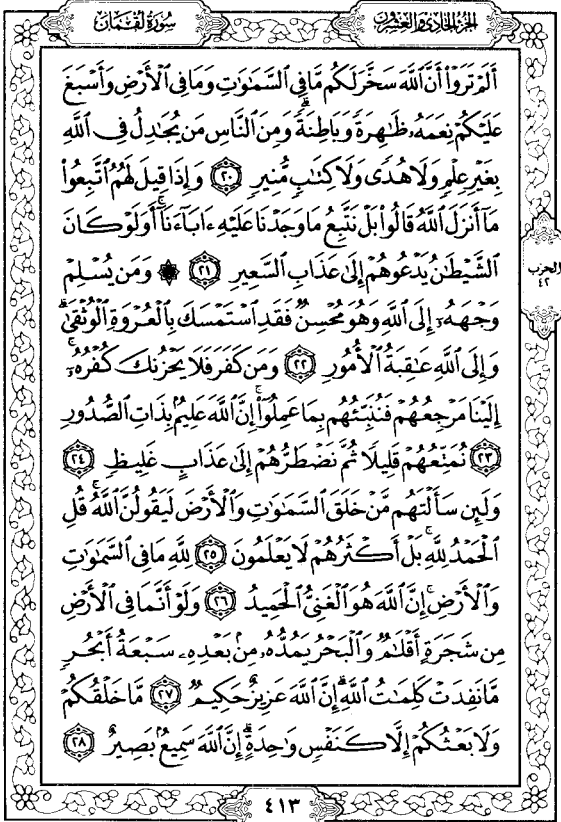 سُورَةُ لُقْمَان
الجُزْءُ الحَادِي وَالعِشْرُونَ
أَلَمْ تَرَوْا۟ أَنَّ ٱللَّهَ سَخَّرَ لَكُم مَّا فِى ٱلسَّمَٰوَٰتِ وَمَا فِى ٱلْأَرْضِ وَأَسْبَغَ
عَلَيْكُمْ نِعَمَهُۥ ظَٰهِرَةً وَبَاطِنَةً ۗ وَمِنَ ٱلنَّاسِ مَن يُجَٰدِلُ فِى ٱللَّهِ
بِغَيْرِ عِلْمٍ وَلَا هُدًى وَلَا كِتَٰبٍ مُّنِيرٍ ٢٠ وَإِذَا قِيلَ لَهُمُ ٱتَّبِعُوا۟
مَآ أَنزَلَ ٱللَّهُ قَالُوا۟ بَلْ نَتَّبِعُ مَا وَجَدْنَا عَلَيْهِ ءَابَآءَنَآ ۚ أَوَلَوْ كَانَ
ٱلشَّيْطَٰنُ يَدْعُوهُمْ إِلَىٰ عَذَابِ ٱلسَّعِيرِ ٢١ ۞ وَمَن يُسْلِمْ
وَجْهَهُۥٓ إِلَى ٱللَّهِ وَهُوَ مُحْسِنٌ فَقَدِ ٱسْتَمْسَكَ بِٱلْعُرْوَةِ ٱلْوُثْقَىٰ ۗ
وَإِلَى ٱللَّهِ عَٰقِبَةُ ٱلْأُمُورِ ٢٢ وَمَن كَفَرَ فَلَا يَحْزُنكَ كُفْرُهُۥٓ ۚ
إِلَيْنَا مَرْجِعُهُمْ فَنُنَبِّئُهُم بِمَا عَمِلُوٓا۟ ۚ إِنَّ ٱللَّهَ عَلِيمٌۢ بِذَاتِ ٱلصُّدُورِ
٢٣ نُمَتِّعُهُمْ قَلِيلًا ثُمَّ نَضْطَرُّهُمْ إِلَىٰ عَذَابٍ غَلِيظٍ ٢٤
وَلَئِن سَأَلْتَهُم مَّنْ خَلَقَ ٱلسَّمَٰوَٰتِ وَٱلْأَرْضَ لَيَقُولُنَّ ٱللَّهُ ۚ قُلِ
ٱلْحَمْدُ لِلَّهِ ۚ بَلْ أَكْثَرُهُمْ لَا يَعْلَمُونَ ٢٥ لِلَّهِ مَا فِى ٱلسَّمَٰوَٰتِ
وَٱلْأَرْضِ ۚ إِنَّ ٱللَّهَ هُوَ ٱلْغَنِىُّ ٱلْحَمِيدُ ٢٦ وَلَوْ أَنَّمَا فِى ٱلْأَرْضِ
مِن شَجَرَةٍ أَقْلَٰمٌ وَٱلْبَحْرُ يَمُدُّهُۥ مِنۢ بَعْدِهِۦ سَبْعَةُ أَبْحُرٍ
مَّا نَفِدَتْ كَلِمَٰتُ ٱللَّهِ ۗ إِنَّ ٱللَّهَ عَزِيزٌ حَكِيمٌ ٢٧ مَّا خَلْقُكُمْ
وَلَا بَعْثُكُمْ إِلَّا كَنَفْسٍ وَٰحِدَةٍ ۗ إِنَّ ٱللَّهَ سَمِيعٌۢ بَصِيرٌ ٢٨
الحزب
٤٢
٤١٣